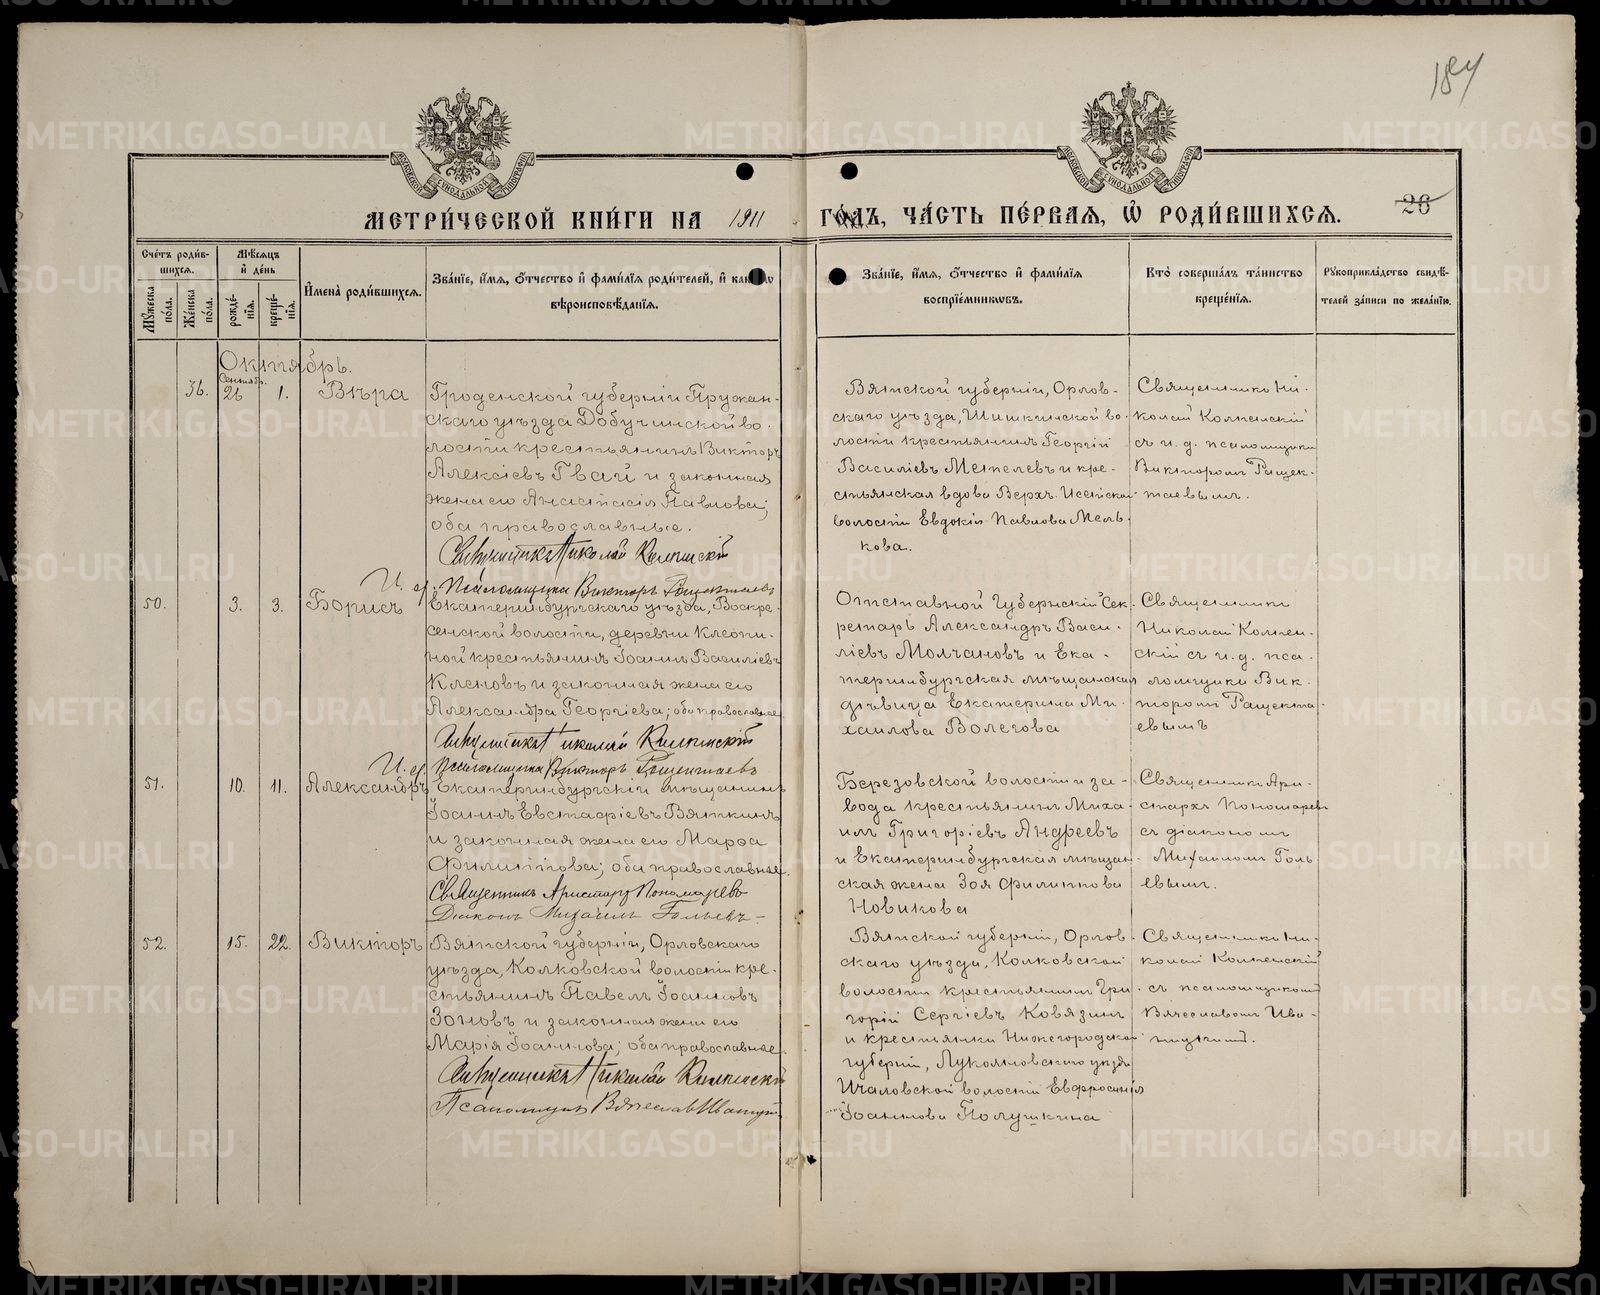 184
МЕТРИ́ЧЕСКОЙ КНИ́ГИ НА 1911
ГО́ДЪ, ЧА́СТЬ ПЕ́РВАѦ, Ѡ҆ РОДИ́ВШИХСѦ.
26
Сче́тъ роди́в-
шихся.
Мꙋ́жеска по́ла.
Же́нска по́ла.
Мѣ́сяцъ
и҆ де́нь
рожде́-
нїѧ.
креще́-
нїѧ.
И҆мена̀ роди́вшихся.
Зва́нїе, и҆́мя, ѻ҆́тчество и҆ фами́лїя роди́телей, и҆
вѣроисповѣ́данїя.
Зва́нїе, и҆́мя, ѻ҆́тчество и҆ фами́лїя
воспрїе́мникѡвъ.
Кто̀ соверша́лъ та́инство
креще́нїя.
Рꙋкоприкла́дство свидѣ́-
телей за́писи по жела́нїю.
Октябрь.
36.
Сентябр.
26
1.
Вѣра
Гроденской губерніи Пружан-
скаго уѣзда Добучинской во-
лости крестьянинъ Викторъ
Алексіевъ Гвай и законная
жена его Анастасія Павлова;
оба православные.
Священникъ Николай Колпенскій
И. д. Псаломщика Викторъ Ращектаевъ
Вятской губерніи, Орлов-
скаго уѣзда, Шишкинской во-
лости крестьянинъ Георгій
Василіевъ Метелевъ и кре-
стьянская вдова Верхъ-Исетской
волости Евдокія Павлова Мель-
кова.
Священникъ Ни-
колай Колпенскій
съ и. д. псаломщика
Викторомъ Ращек-
таевымъ.
50.
3.
3.
Борисъ
Екатеринбургскаго уѣзда, Воскре-
сенской волости, деревни Клеопи-
ной крестьянинъ Іоаннъ Василіевъ
Кленовъ и законная жена его
Александра Георгіева; оба православные
Священникъ Николай Колпенскій
И. д. Псаломщика Викторъ Ращектаевъ
Отставной Губернскій Сек-
ретарь Александръ Васи-
ліевъ Молчановъ и Ека-
теринбургская мѣщанская
дѣвица Екатерина Ми-
хаилова Волегова
Священникъ
Николай Колпен-
скій съ и. д. пса-
ломщика Вик-
торомъ Ращекта-
евымъ
51.
10.
11.
Александръ
Екатеринбургскій мѣщанинъ
Іоаннъ Евстафіевъ Вяткинъ
и законная жена его Марѳа
Филиппова; оба православные.
Священникъ Аристархъ Пономаревъ
Діаконъ Михаилъ Гольевъ
Березовской волости и за-
вода крестьянинъ Миха-
илъ Григоріевъ Андреевъ
и Екатеринбургская мѣщан-
ская жена Зоя Филиппова
Новикова
Священникъ Ари-
стархъ Пономаревъ
съ діакономъ
Михаиломъ Голь-
евымъ.
52.
15.
22.
Викторъ
Вятской губерніи, Орловскаго
уѣзда, Колковской волости кре-
стьянинъ Павелъ Іоанновъ
Зоновъ и законная жена его
Марія Іоаннова; оба православные.
Священникъ Николай Колпенскій
Псаломщикъ Вячеславъ
Вятской губерніи, Орлов-
скаго уѣзда, Колковской
волости крестьянинъ Гри-
горій Сергіевъ Ковязинъ
и крестьянка Нижегородской
губерніи, Лукояновскаго уѣзда
Ичаловской волости Евфросинія
Іоаннова Полушкина
Священникъ Ни-
колай Колпенскій
съ псаломщикомъ
Вячеславомъ
METRIKI.GASO-URAL.RU